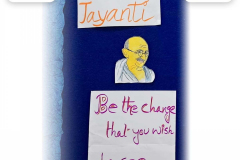 Jayanti
Be the change
that you wish
to see